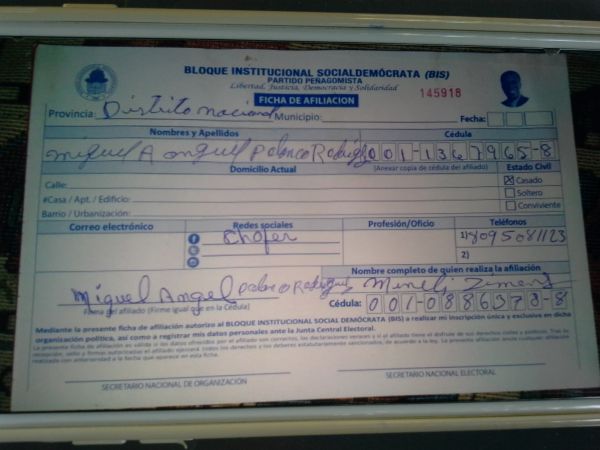 BLOQUE INSTITUCIONAL SOCIALDEMÓCRATA (BIS)
PARTIDO PEÑAGOMISTA
Libertad, Justicia, Democracia y Solidaridad
FICHA DE AFILIACION
145918
Provincia: Distrito nacional Municipio: Fecha:
Nombres y Apellidos Cédula
Miguel Anguel Polanco Rodriguez 001-1367965-8
Domicilio Actual (Anexar copia de cédula del afiliado) Estado Civil
Calle: Casado
#Casa / Apt. / Edificio: Soltero
Barrio / Urbanización: Conviviente
Correo electrónico Redes sociales Profesión/Oficio Teléfonos
Chofer 1) 8095081123
2)
Nombre completo de quien realiza la afiliación
Miguel Angel Polanco Rodriguez
Firma del afiliado (Firme igual que en la Cédula) Cédula: 001-0886378-8
Mediante la presente ficha de afiliación autorizo al BLOQUE INSTITUCIONAL SOCIAL DEMÓCRATA (BIS) a realizar mi inscripción única y exclusiva en dicha
organización política, así como a registrar mis datos personales ante la Junta Central Electoral.
SECRETARIO NACIONAL DE ORGANIZACIÓN SECRETARIO NACIONAL ELECTORAL